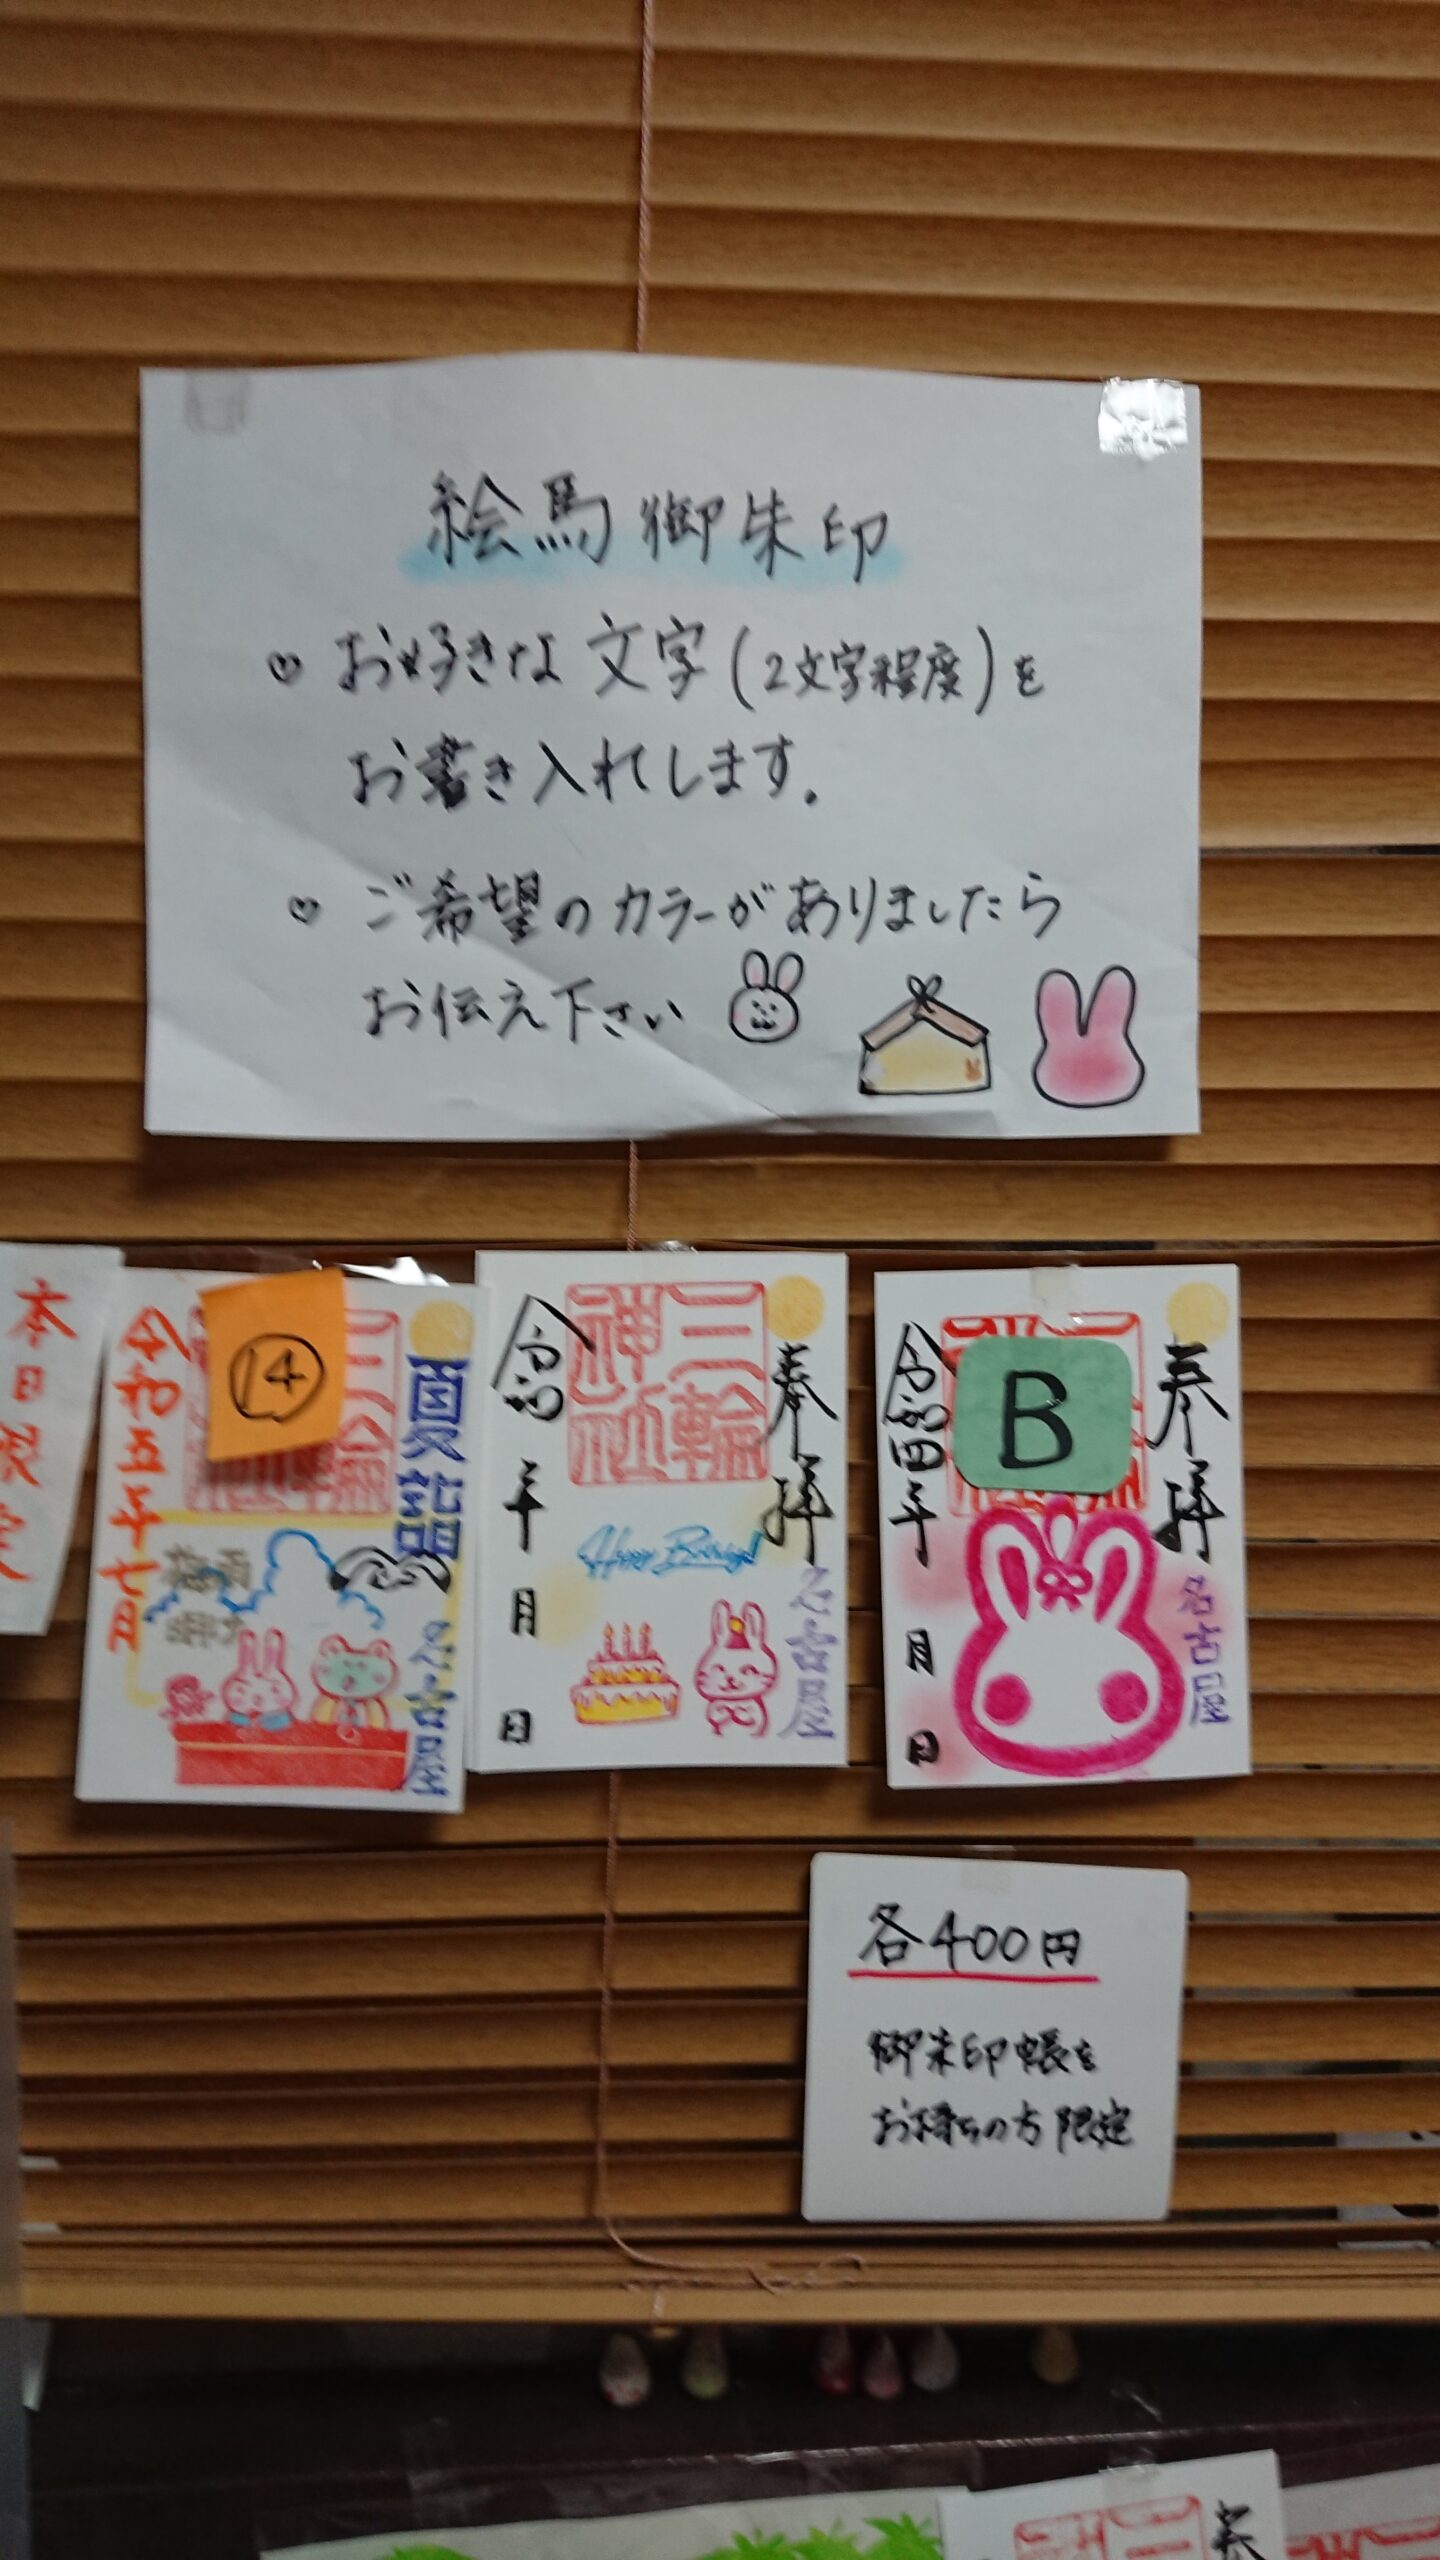 絵馬御朱印
♡ お好きな文字(2文字程度)を
お書き入れします。
♡ ご希望のカラーがありましたら
お伝え下さい
本日限定
夏詣
名古屋
三輪
⑭
梅雨
令和五年七月
奉拝
名古屋
三輪
神社
Happy Birthday!
令和 年 月 日
奉拝
名古屋
B
令和四年 月 日
各400円
御朱印帳を
お持ちの方限定
三
奉